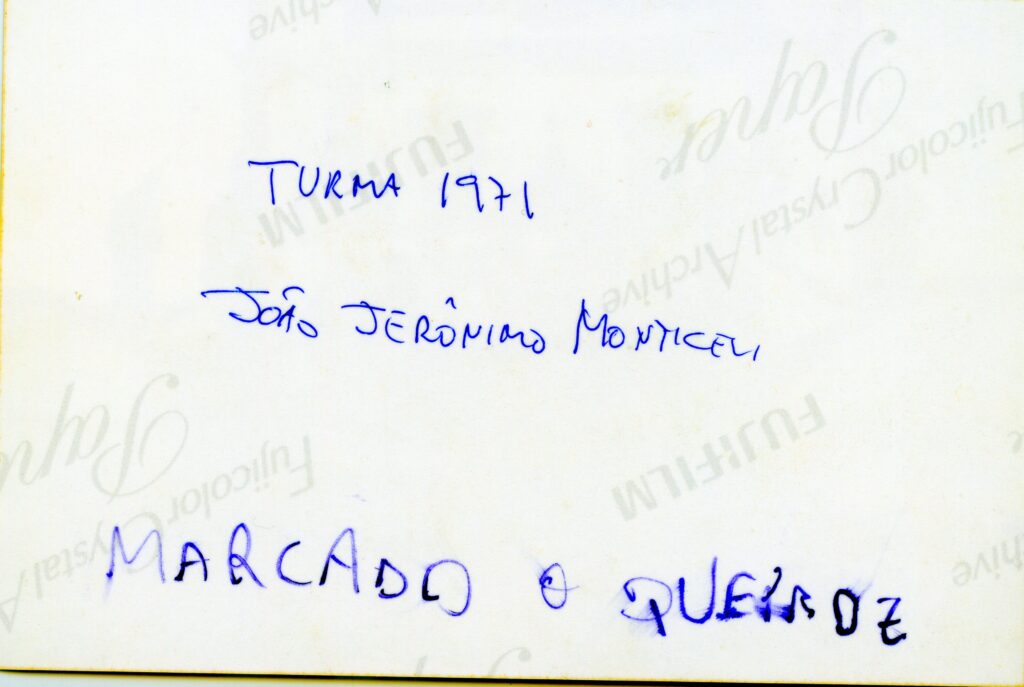 TURMA 1971
JOÃO JERÔNIMO MONTICELI
MARCADO O QUEIROZ
FUJIFILM
Fujicolor Crystal Archive
Paper
FUJIFILM
Fujicolor Crystal Archive
Paper
Archive
Archive